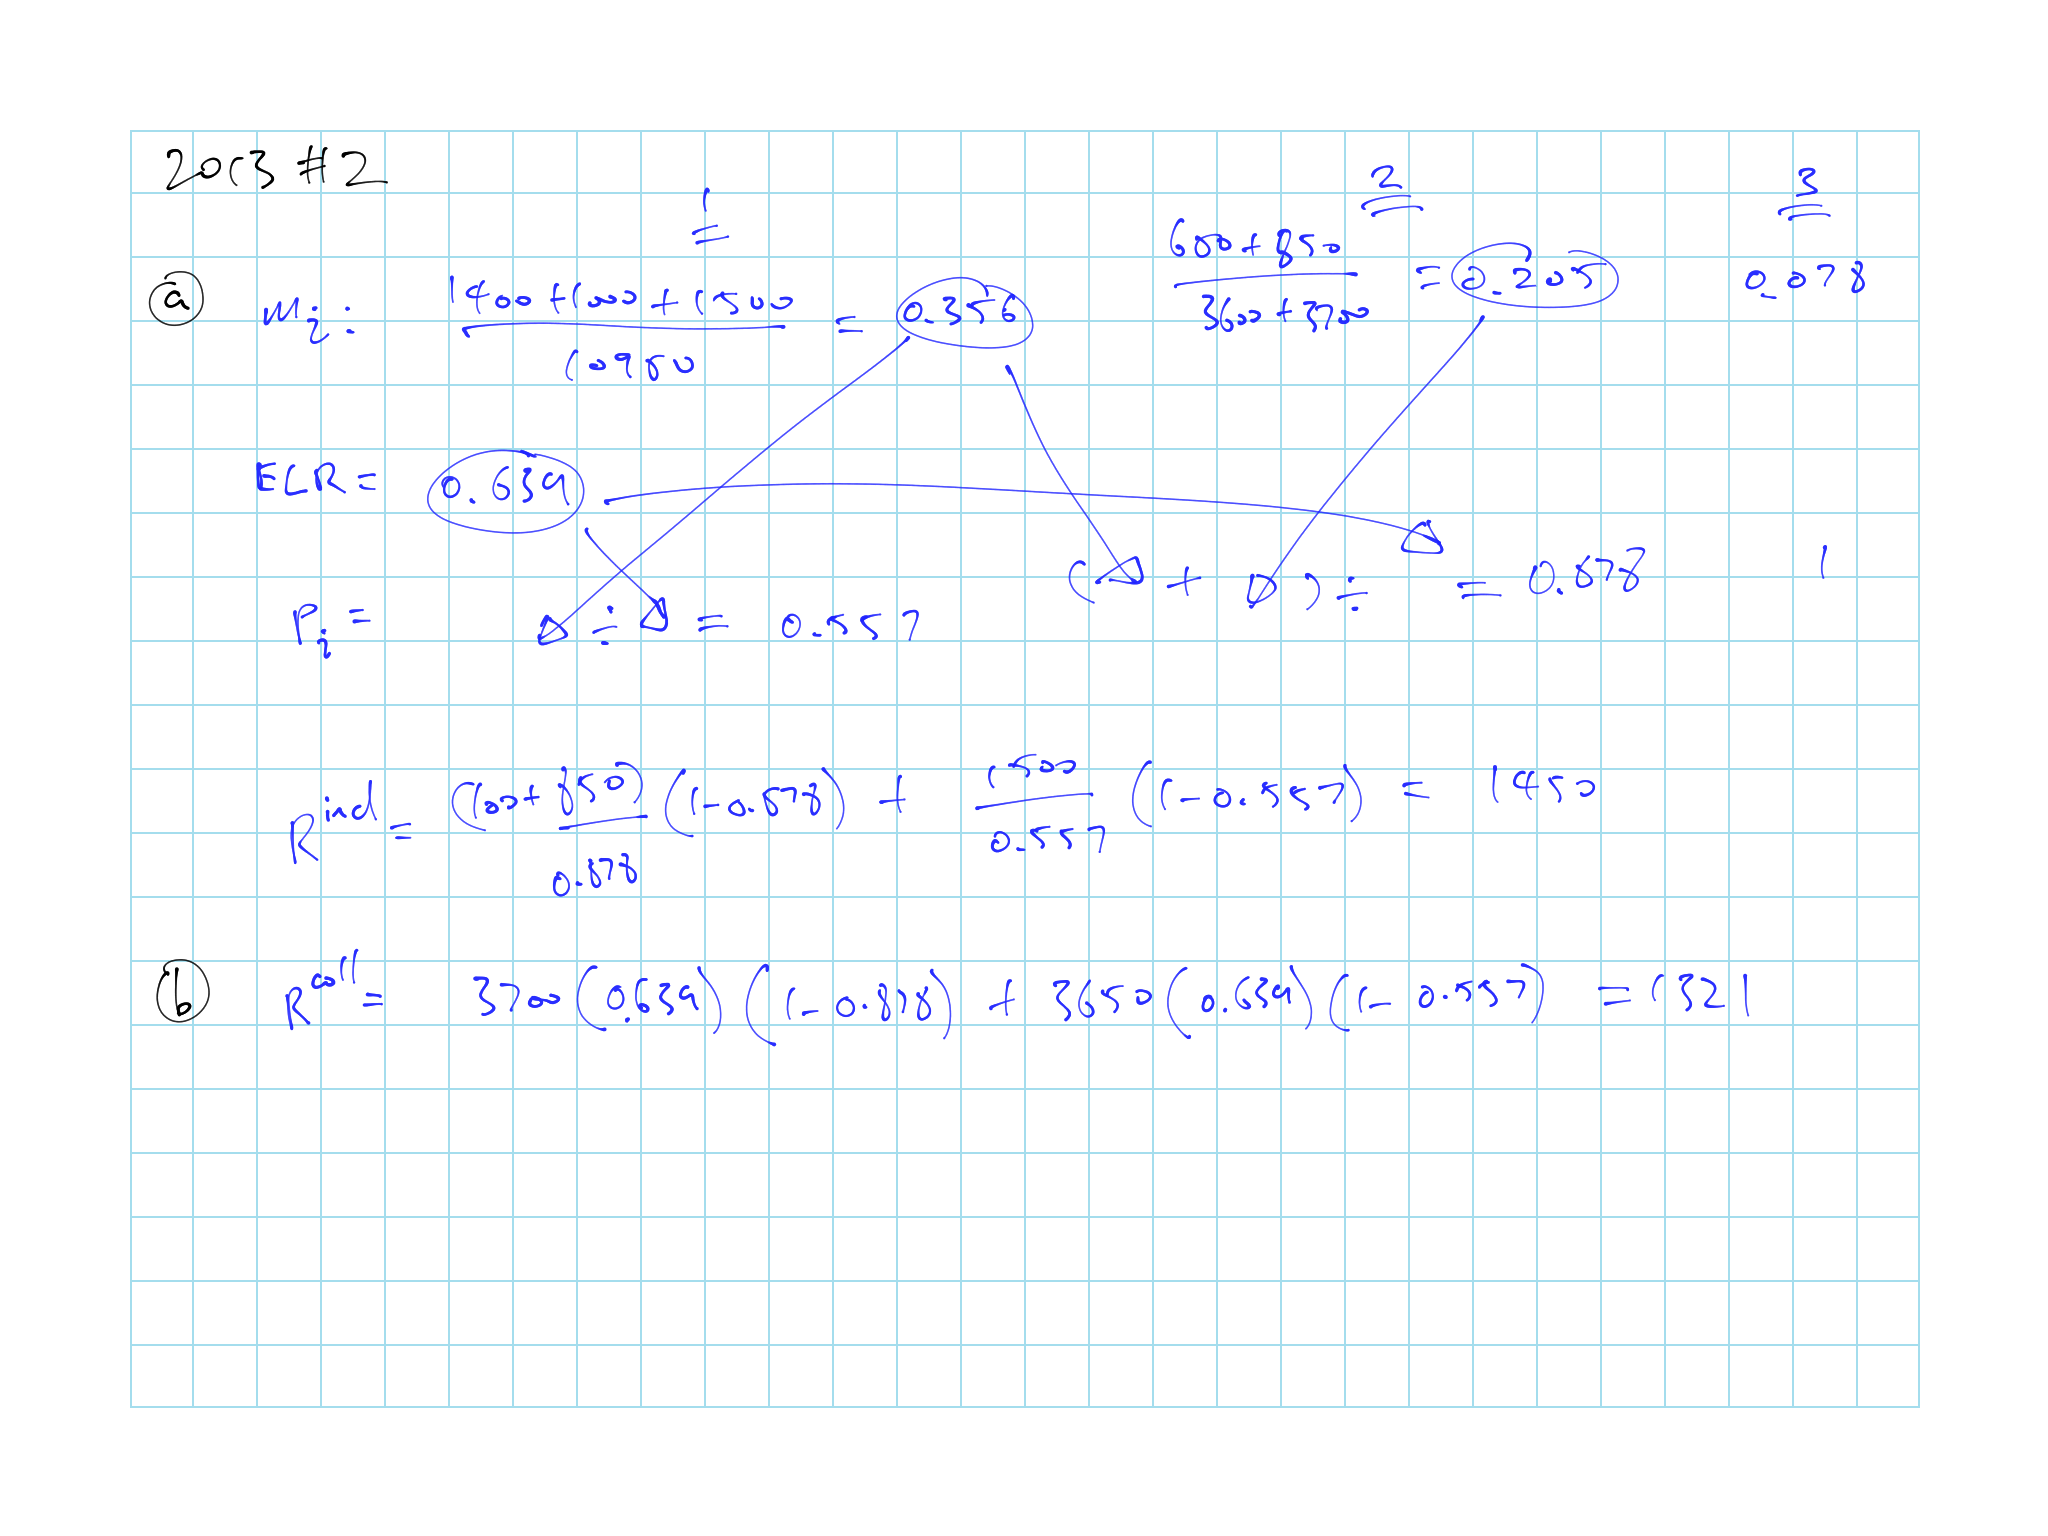 2013 #2
1 2 3
(a) mi: (1400+1000+1500)/10950 = 0.356 (600+850)/(3600+3700) = 0.205 0.078
ELR = 0.639
Pi = ÷ = 0.557 ( + ) ÷ = 0.878 1
R^ind = (1000+850)/0.878 (1-0.878) + 1500/0.557 (1-0.557) = 1450
(b) R^coll = 3700(0.639)(1-0.878) + 3650(0.639)(1-0.557) = 1321